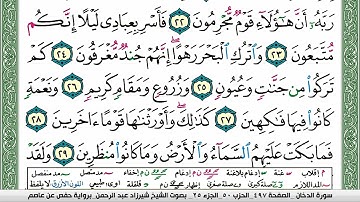 رَبَّهُۥٓ أَنَّ هَـٰٓؤُلَآءِ قَوْمٌ مُّجْرِمُونَ ٢٢ فَأَسْرِ بِعِبَادِى لَيْلًا إِنَّكُم
مُّتَّبَعُونَ ٢٣ وَٱتْرُكِ ٱلْبَحْرَ رَهْوًا ۖ إِنَّهُمْ جُندٌ مُّغْرَقُونَ ٢٤ كَمْ
تَرَكُوا۟ مِن جَنَّـٰتٍ وَعُيُونٍ ٢٥ وَزُرُوعٍ وَمَقَامٍ كَرِيمٍ ٢٦ وَنَعْمَةٍ
كَانُوا۟ فِيهَا فَـٰكِهِينَ ٢٧ كَذَٰلِكَ ۖ وَأَوْرَثْنَـٰهَا قَوْمًا ءَاخَرِينَ ٢٨
فَمَا بَكَتْ عَلَيْهِمُ ٱلسَّمَآءُ وَٱلْأَرْضُ وَمَا كَانُوا۟ مُنظَرِينَ ٢٩ وَلَقَدْ
سورة الدخان الصفحة ٤٩٧ الحزب ٥٠ الجزء ٢٥ بصوت الشيخ شيرزاد عبد الرحمن برواية حفص عن عاصم